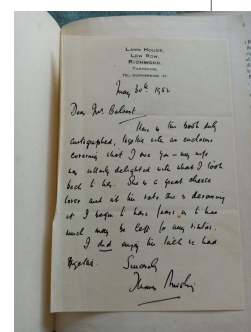 LAWN HOUSE,
LOW ROW,
RICHMOND,
YORKSHIRE.
TEL. GUNNERSIDE
May 30th 1962
Dear Mr. Calvert.
Here is the book duly
autographed, together with an enclosure
covering what I owe you – my wife
was utterly delighted with what I took
back to her. She is a great cheese
lover and at the rate she is devouring
it I begin to have fears as to how
much may be left for any visitors.
I did enjoy the talk we had
together.
Sincerely